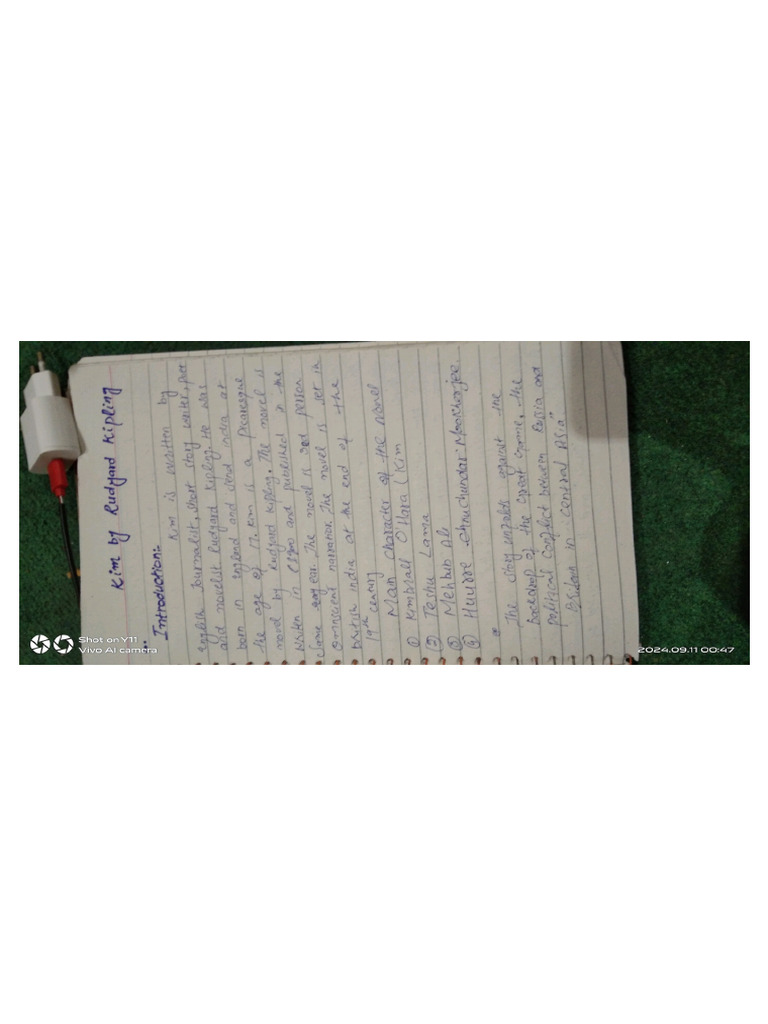 Kim by Rudyard Kipling
Introduction:-
Kim is written by
english Journalist, short story writer, poet
and novelist Rudyard Kipling. He was
born in England and and India at
the age of 17. Kim is a picaresque
novel by Rudyard Kipling. The novel is
written in and published in the
Same year. The novel is 3rd person
omniscient narrative. The novel is set in
british india at the end of the
19th century
Main character of the novel
① Kimball O'Hara (Kim
② Teshu Lama
③ Mehbub Ali
④ Hurree Chnuchundar Moorkharjee.
* The story unfolds against the
backdrop of the Great Game, the
political conflict between Russia and
Britain in central Asia"
Shot on Y11
Vivo AI camera
2024.09.11 00:47